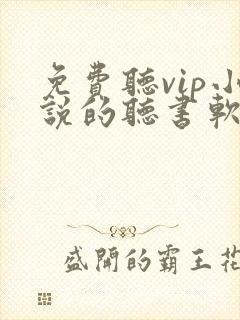 免費聽vip小
說的聽書軟
盛開的霸王花